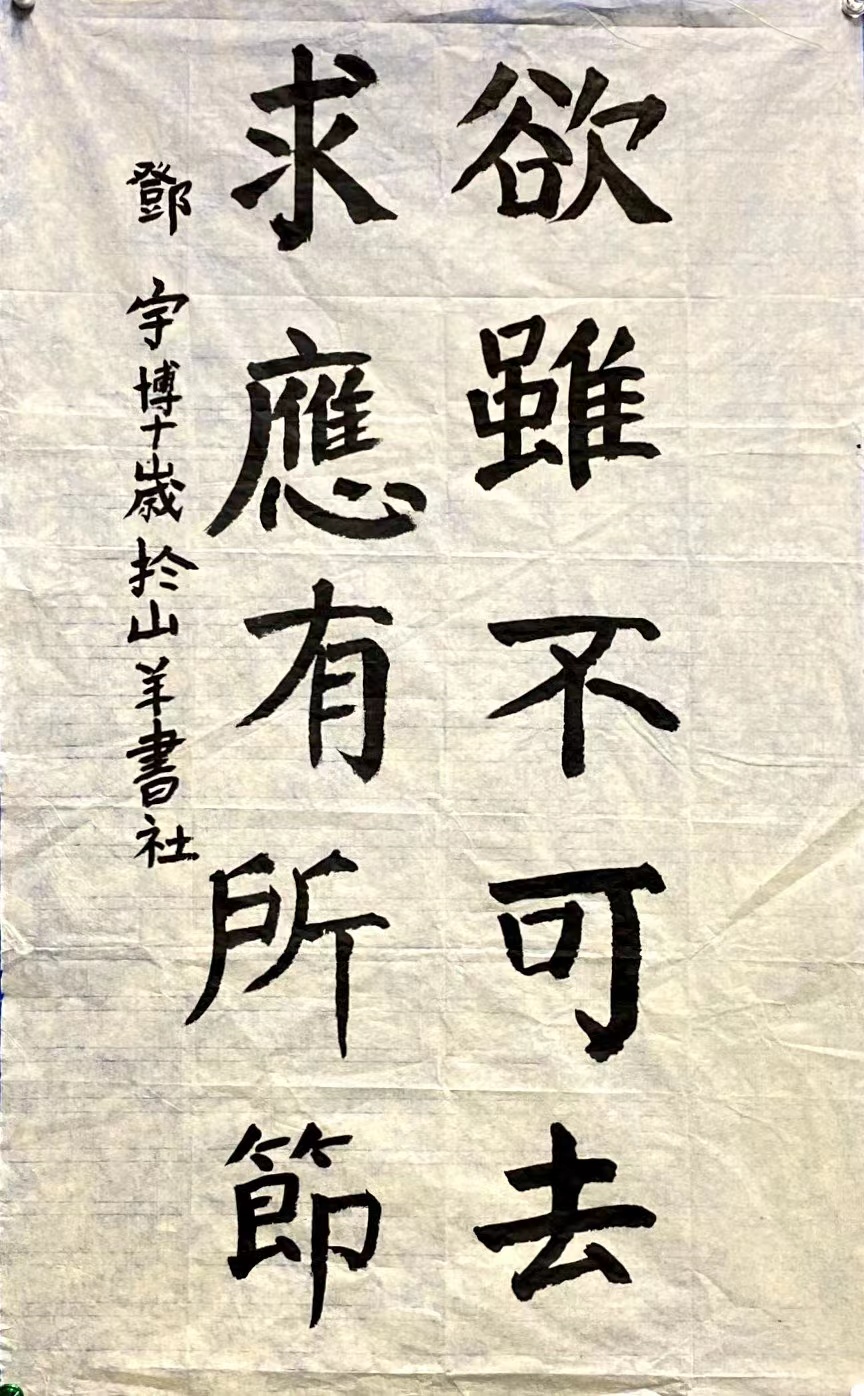 欲雖不可去
求應有所節
鄧宇博十歲於山羊書社